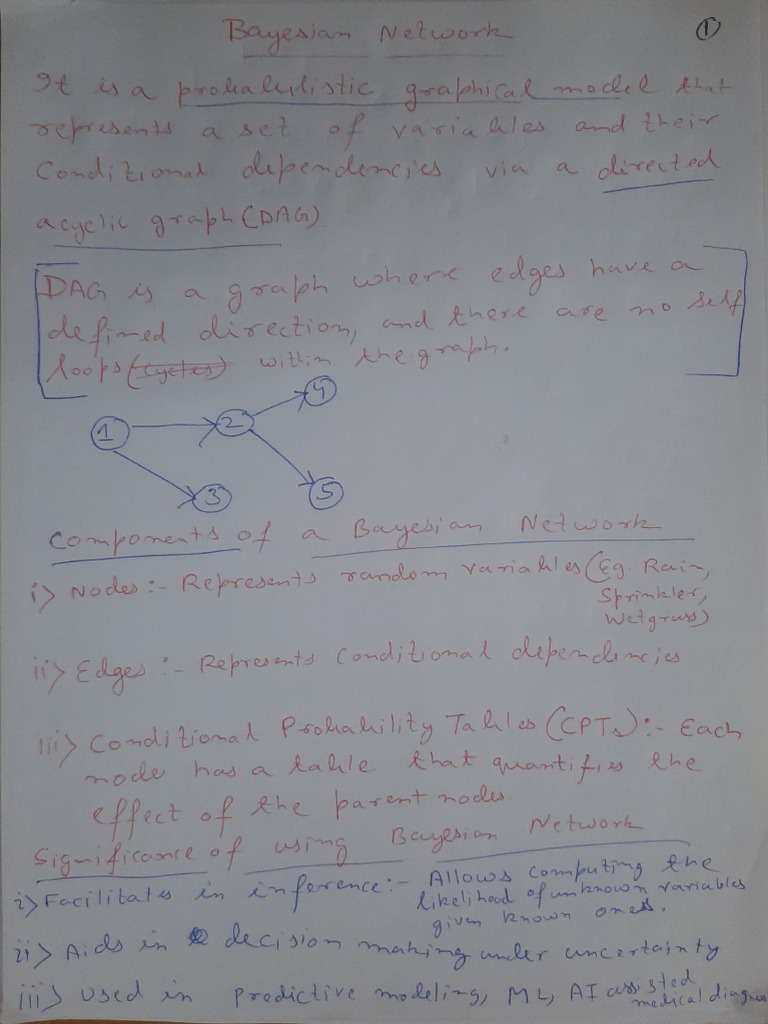 Bayesian Network
1
It is a probabilistic graphical model that
represents a set of variables and their
Conditional dependencies via a directed
acyclic graph (DAG)
DAG is a graph where edges have a
defined direction, and there are no self
loops (cycles) within the graph.
4
1 2
3 5
Components of a Bayesian Network
i) Nodes :- Represents random variables (Eg. Rain,
Sprinkler,
Wetgrass)
ii) Edges :- Represents Conditional dependencies
iii) Conditional Probability Tables (CPTs) :- Each
node has a table that quantifies the
effect of the parent nodes
Significance of using Bayesian Network
i) Facilitates in inference :- Allows computing the
likelihood of unknown variables
given known ones.
ii) Aids in decision making under uncertainty
iii) Used in predictive modeling, ML, AI assisted
medical diagnos